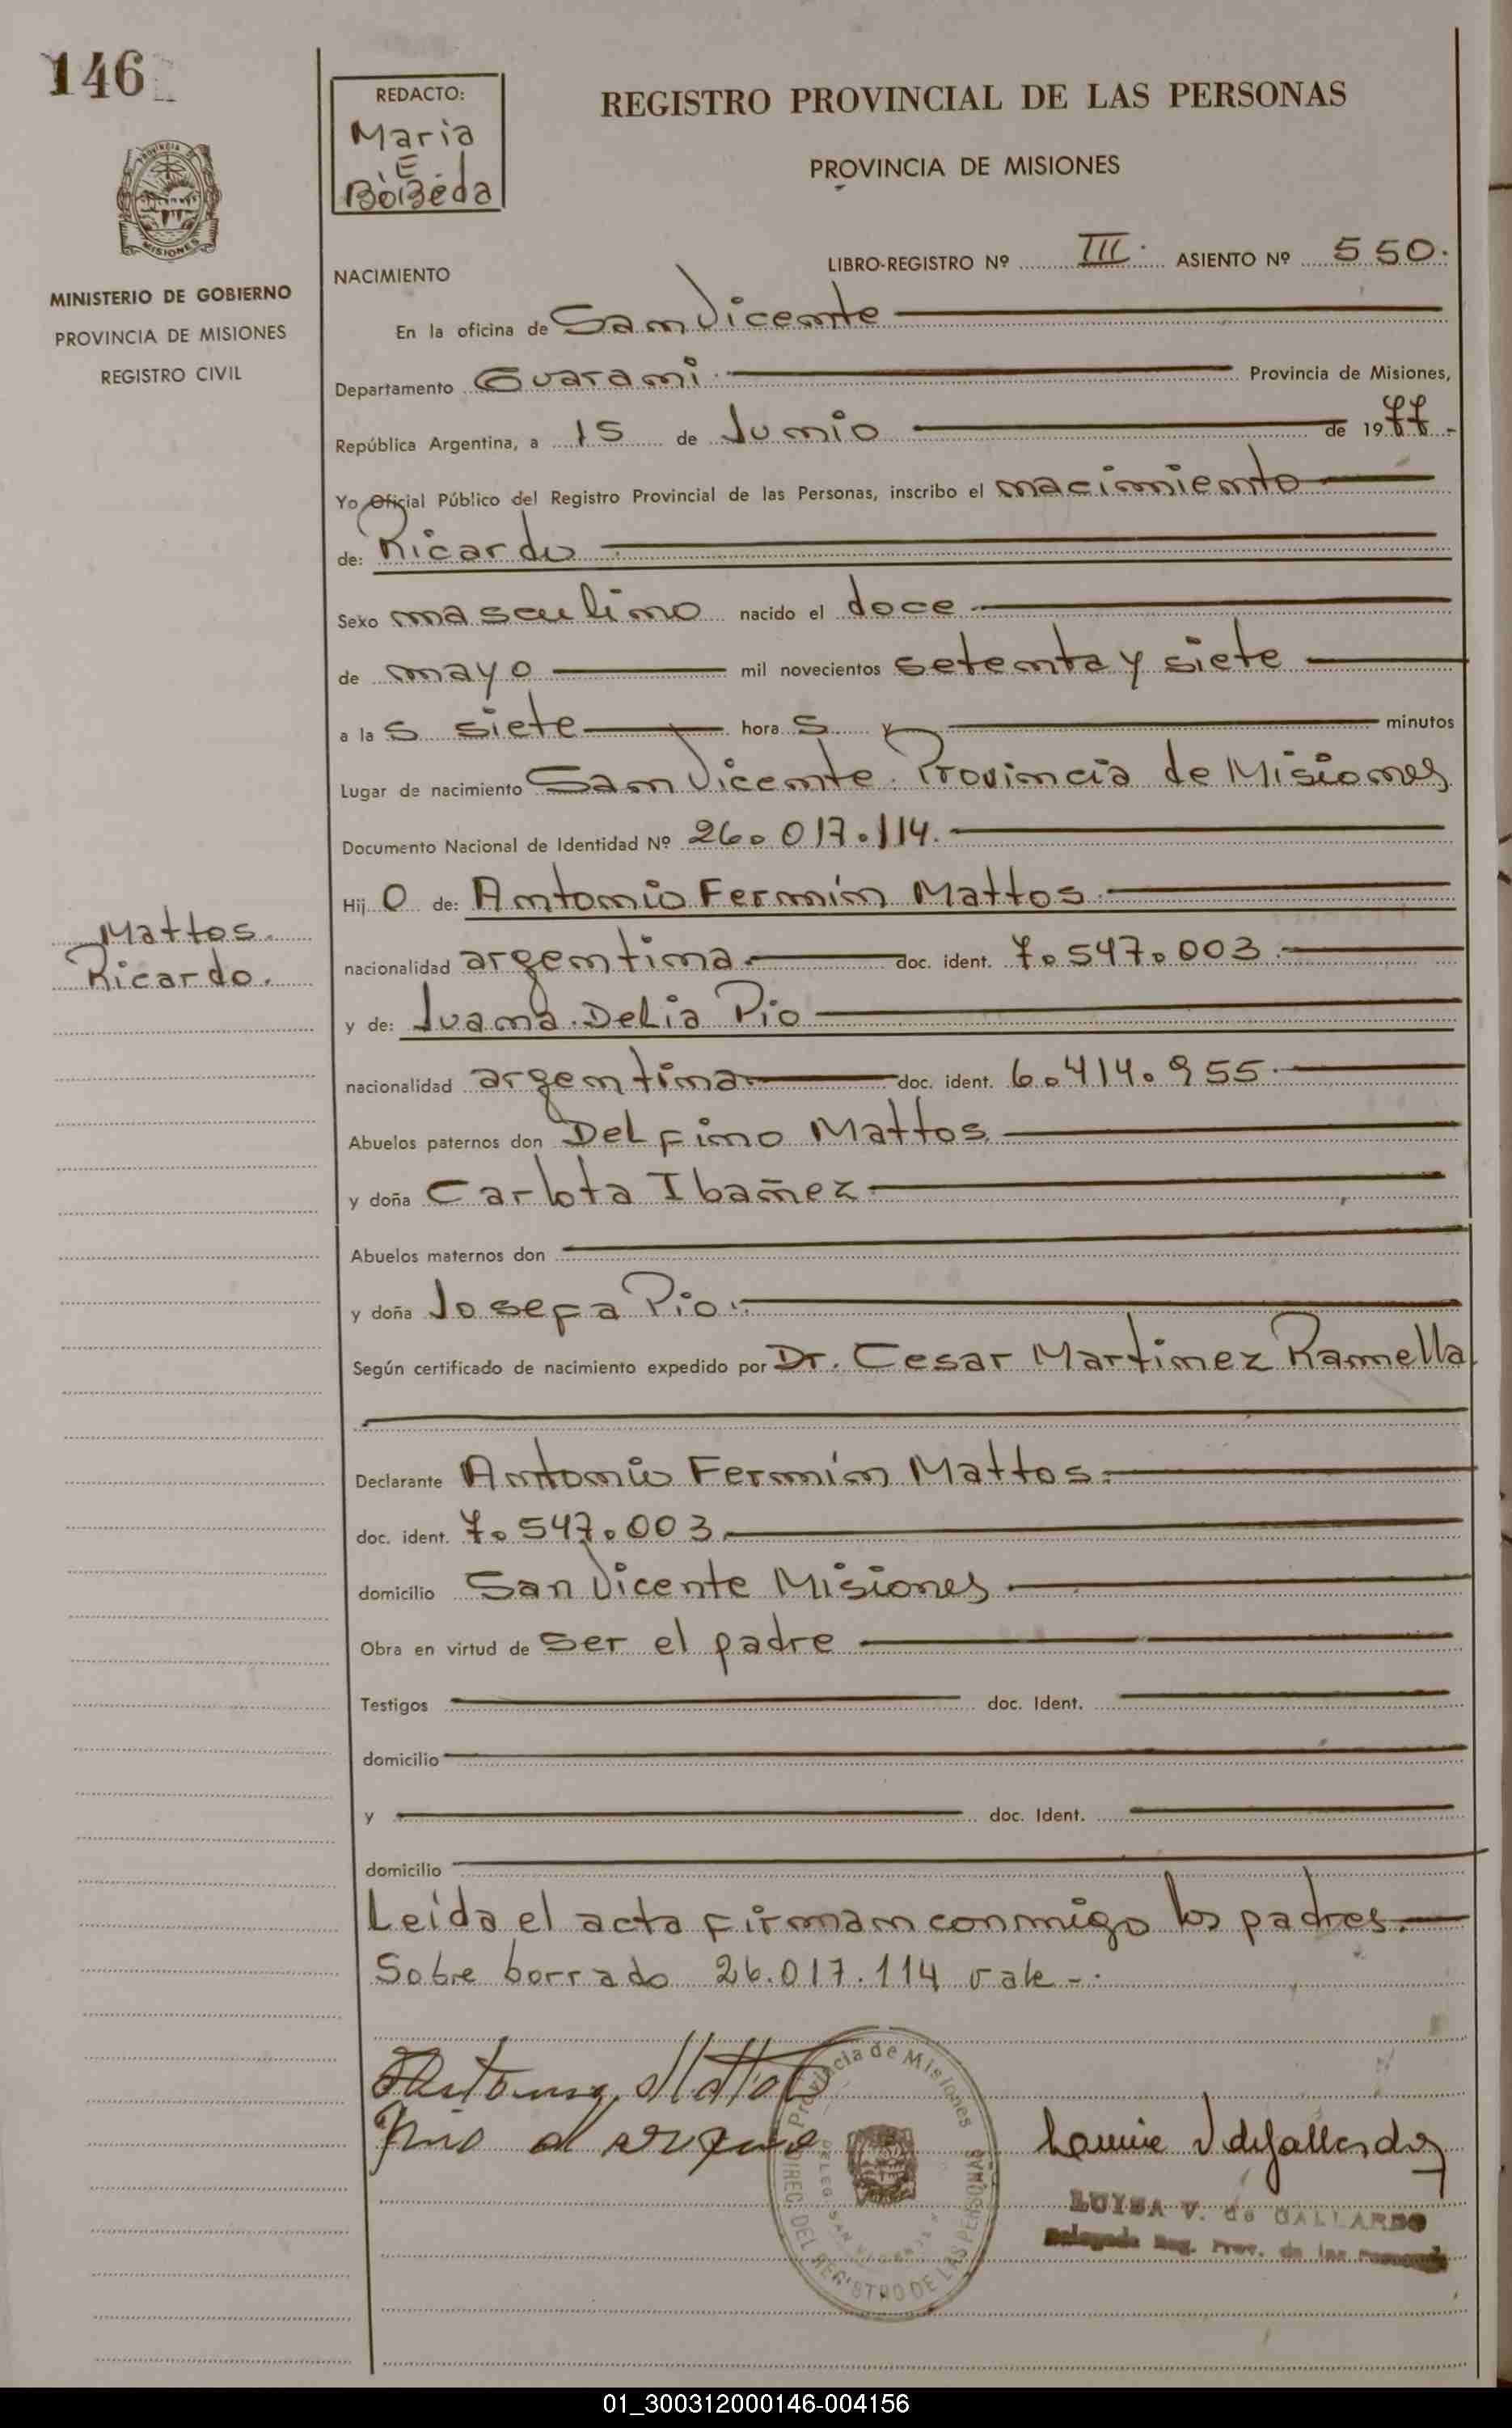 146
REDACTO:
Maria
E.
Boibeda
REGISTRO PROVINCIAL DE LAS PERSONAS
PROVINCIA DE MISIONES
PROVINCIA
MISIONES
MINISTERIO DE GOBIERNO
PROVINCIA DE MISIONES
REGISTRO CIVIL
LIBRO-REGISTRO Nº III. ASIENTO Nº 550.
NACIMIENTO
En la oficina de San Vicente
Departamento Guarani Provincia de Misiones,
República Argentina, a 15 de Junio de 1977.-
Yo Oficial Público del Registro Provincial de las Personas, inscribo el nacimiento
de: Ricardo
Sexo masculino nacido el doce
de mayo mil novecientos setenta y siete
a las siete horas y minutos
Lugar de nacimiento San Vicente. Provincia de Misiones
Documento Nacional de Identidad Nº 26.017.114.
Hijo de: Antonio Fermín Mattos.
Mattos.
Ricardo.
nacionalidad argentina. doc. ident. 7.547.003.
y de: Juana Delia Pio
nacionalidad argentina doc. ident. 6.414.955.
Abuelos paternos don Delfino Mattos
y doña Carlota Ibañez
Abuelos maternos don
y doña Josefa Pio.
Según certificado de nacimiento expedido por Dr. Cesar Martinez Ramella
Declarante Antonio Fermín Mattos.
doc. ident. 7.547.003
domicilio San Vicente Misiones
Obra en virtud de ser el padre
Testigos doc. Ident.
domicilio
y doc. Ident.
domicilio
Leída el acta firman conmigo los padres.
Sobre borrado 26.017.114 vale-.
Mattos
Provincia de Misiones
DIREC. DEL REGISTRO DE LAS PERSONAS
DELEG. SAN VICENTE
LUISA V. de GALLARDO
Delegada Reg. Prov. de las Personas
01_300312000146-004156